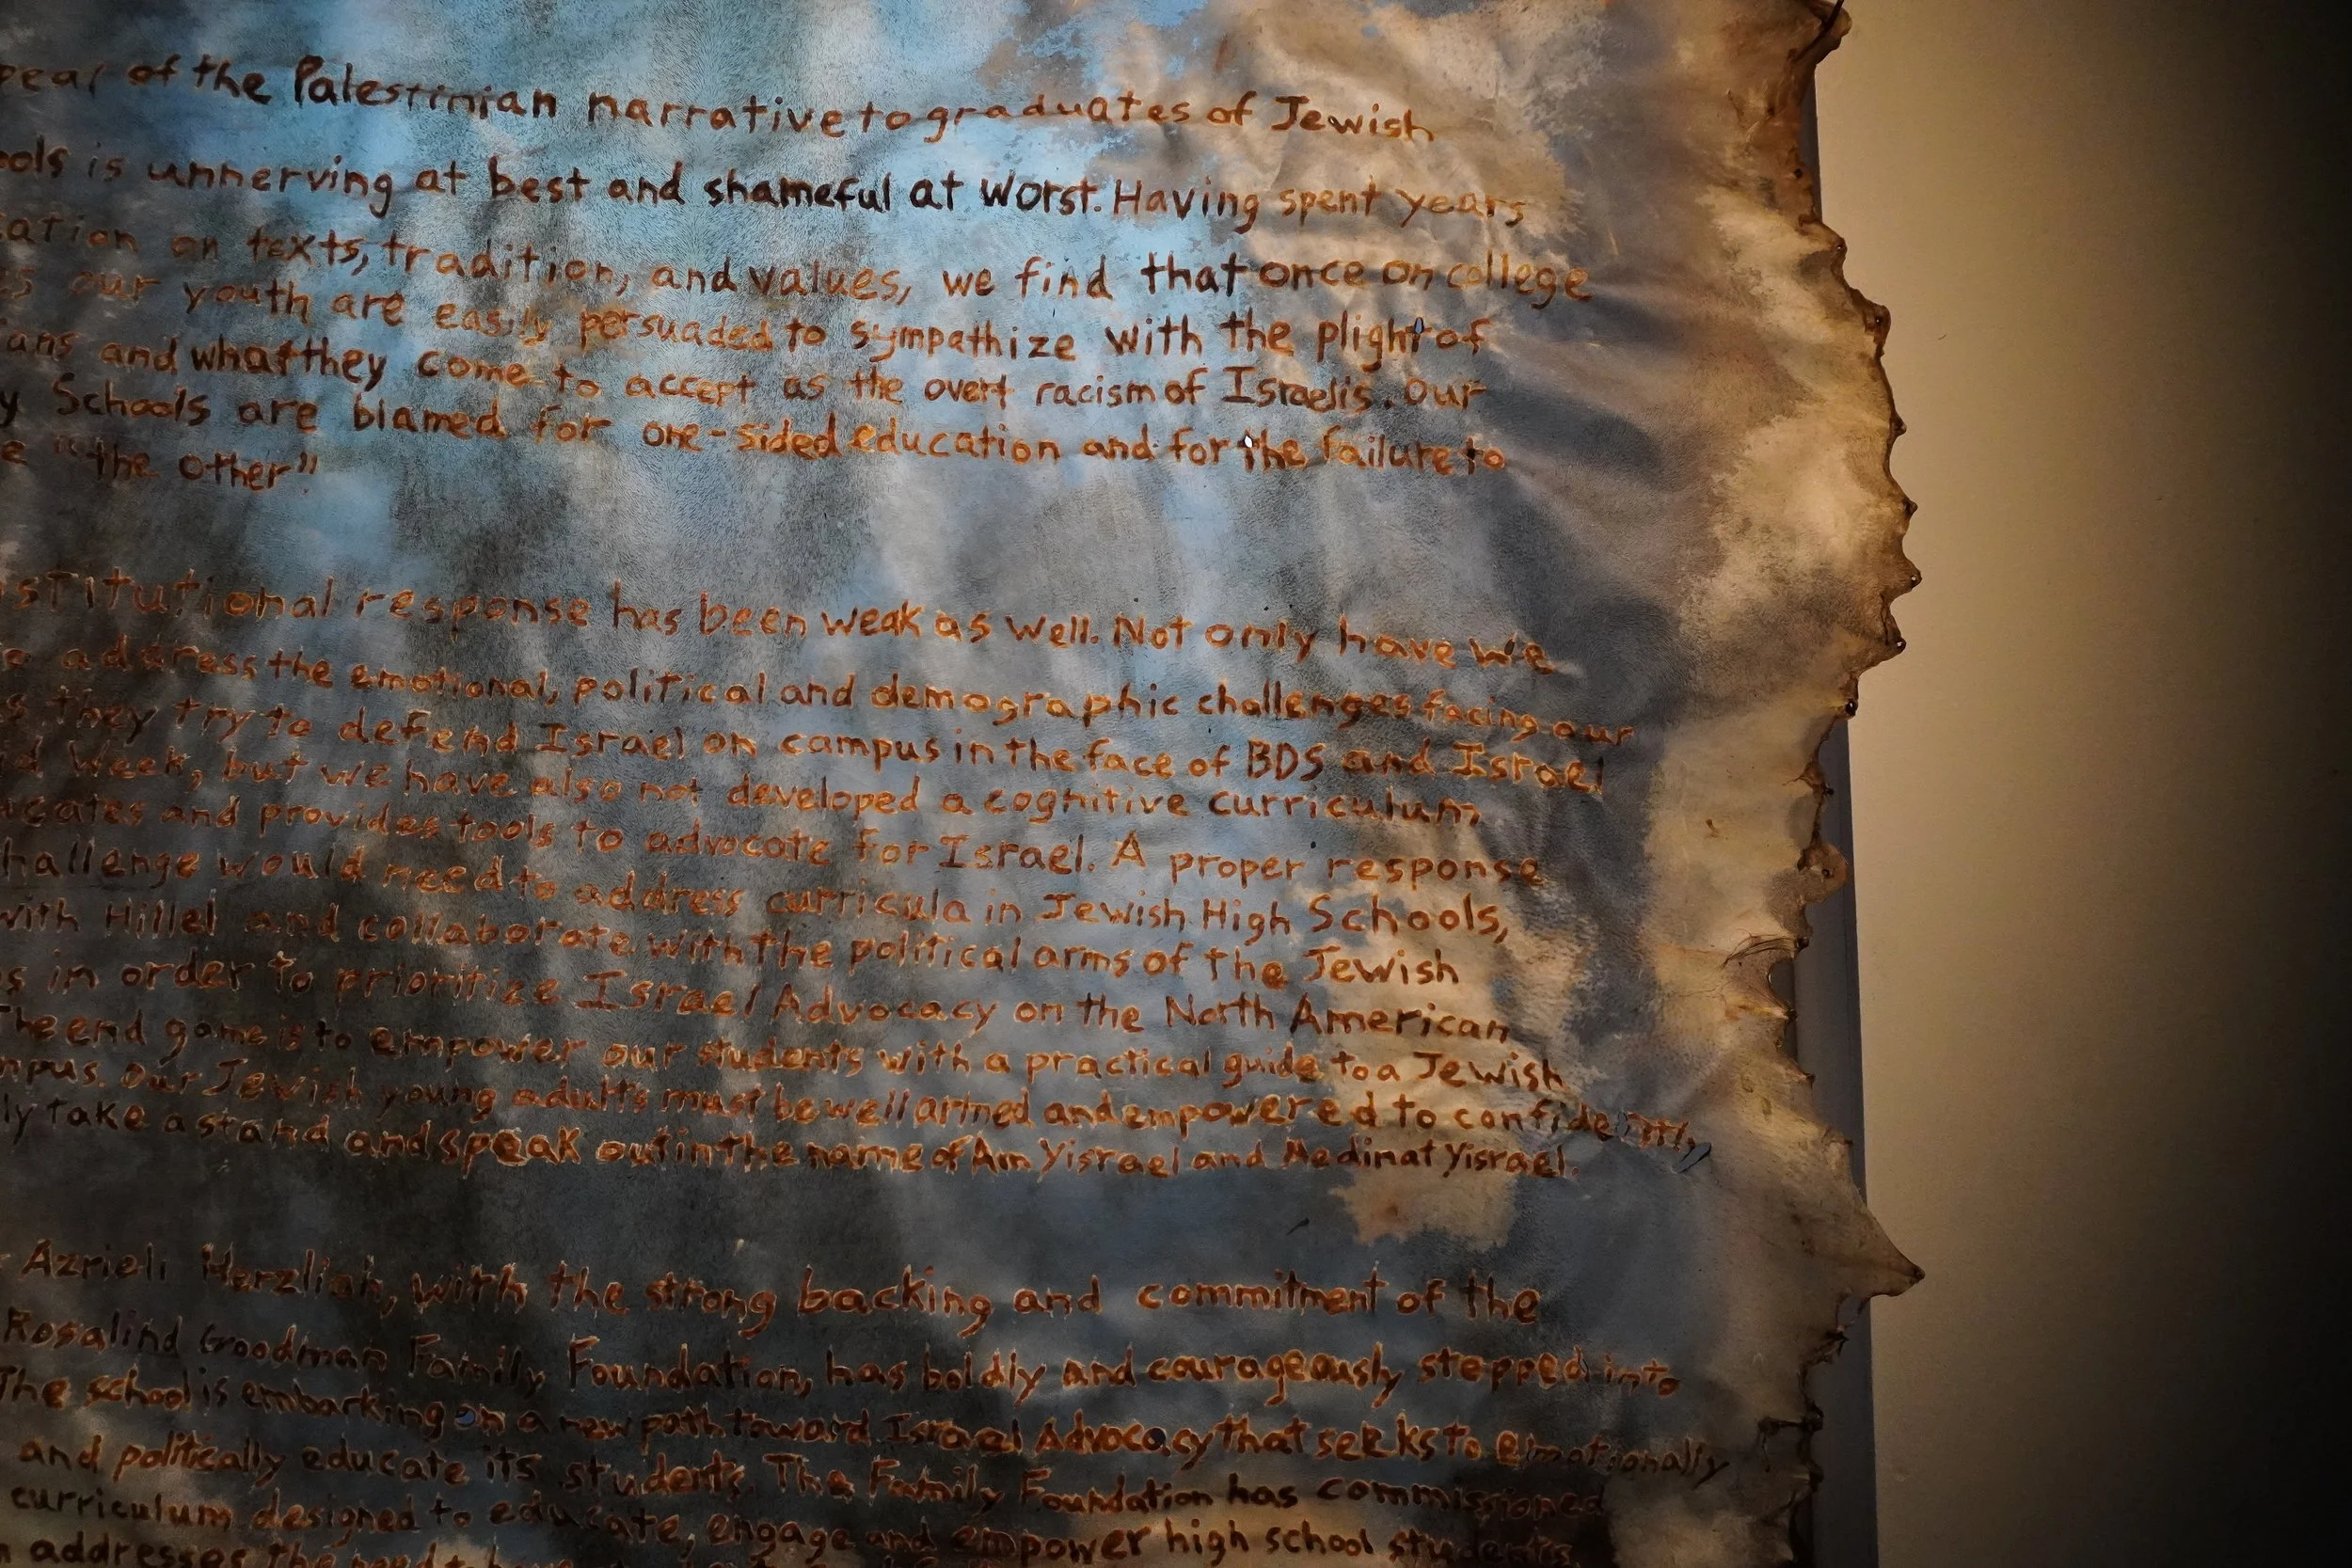 pear of the Palestinian narrative to graduates of Jewish
ools is unnerving at best and shameful at worst. Having spent years
cation on texts, tradition, and values, we find that once on college
es our youth are easily persuaded to sympathize with the plight of
ans and what they come to accept as the overt racism of Israelis. Our
y Schools are blamed for one-sided education and for the failure to
e "the other"
nstitutional response has been weak as well. Not only have we
e address the emotional, political and demographic challenges facing our
s they try to defend Israel on campus in the face of BDS and Israel
id Week, but we have also not developed a cognitive curriculum
ucates and provides tools to advocate for Israel. A proper response
hallenge would need to address curricula in Jewish High Schools,
with Hillel and collaborate with the political arms of the Jewish
s in order to prioritize Israel Advocacy on the North American
The end game is to empower our students with a practical guide to a Jewish
mpus. Our Jewish young adults must be well armed and empowered to confidently,
ly take a stand and speak out in the name of Am Yisrael and Medinat Yisrael.
Azrieli Herzliah, with the strong backing and commitment of the
Rosalind Goodman Family Foundation, has boldly and courageously stepped into
The school is embarking on a new path toward Israel Advocacy that seeks to emotionally
and politically educate its students. The Family Foundation has commissioned
curriculum designed to educate, engage and empower high school students.
addresses the need to